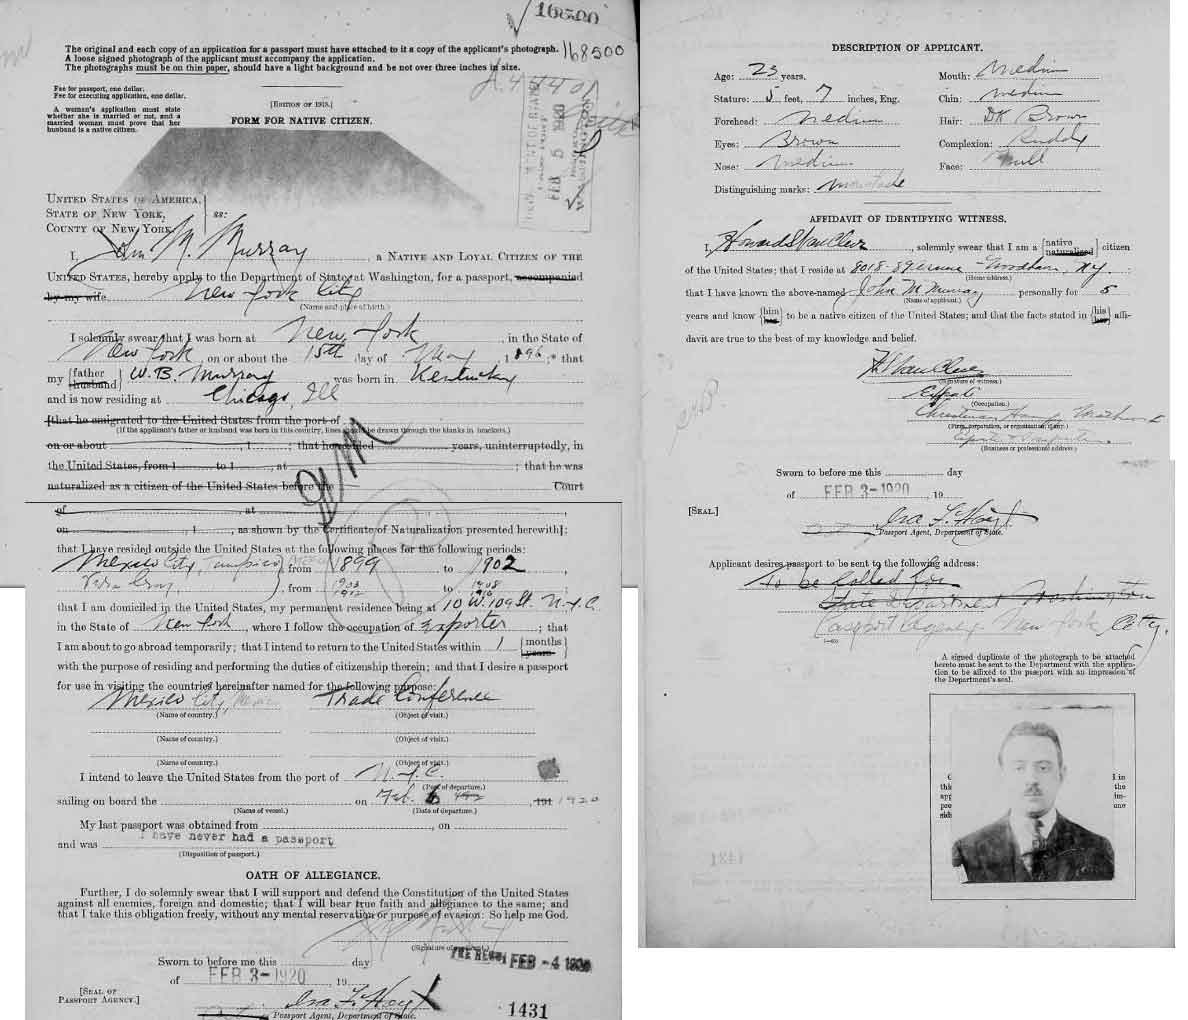 168500
The original and each copy of an application for a passport must have attached to it a copy of the applicant's photograph.
A loose signed photograph of the applicant must accompany the application.
The photographs must be on thin paper, should have a light background and be not over three inches in size.
168500
Fee for passport, one dollar.
Fee for executing application, one dollar.
A woman's application must state
whether she is married or not, and a
married woman must prove that her
husband is a native citizen.
[EDITION OF 1918.]
FORM FOR NATIVE CITIZEN.
FEB 5 1920
UNITED STATES OF AMERICA,
STATE OF NEW YORK,
COUNTY OF NEW YORK,
ss:
I, John M. Murray, a NATIVE AND LOYAL CITIZEN OF THE
UNITED STATES, hereby apply to the Department of State at Washington, for a passport, accompanied
by my wife, New York City
(Name and place of birth.)
I solemnly swear that I was born at New York, in the State of
New York, on or about the 15th day of May, 1896; that
my {father husband} W. B. Murray was born in Kentucky
and is now residing at Chicago, Ill
[that he emigrated to the United States from the port of
(If the applicant's father or husband was born in this country, lines should be drawn through the blanks in brackets.)
on or about , 1 ; that he resided years, uninterruptedly, in
the United States, from 1 to 1 , at ; that he was
naturalized as a citizen of the United States before the Court
of at ,
on , 1 , as shown by the Certificate of Naturalization presented herewith];
that I have resided outside the United States at the following places for the following periods:
Mexico City, Tampico from 1899 to 1902,
Vera Cruz, , from 1903 1912 to 1908 1916
that I am domiciled in the United States, my permanent residence being at 10 W. 109 St. N.Y.C.
in the State of New York, where I follow the occupation of Exporter; that
I am about to go abroad temporarily; that I intend to return to the United States within 1 {months years}
with the purpose of residing and performing the duties of citizenship therein; and that I desire a passport
for use in visiting the countries hereinafter named for the following purpose:
Mexico City, Mexico Trade Conference
(Name of country.) (Object of visit.)
(Name of country.) (Object of visit.)
(Name of country.) (Object of visit.)
I intend to leave the United States from the port of N.Y.C.
(Port of departure.)
sailing on board the on Feb. , 191 1920
(Name of vessel.) (Date of departure.)
My last passport was obtained from , on
and was I have never had a passport
(Disposition of passport.)
OATH OF ALLEGIANCE.
Further, I do solemnly swear that I will support and defend the Constitution of the United States
against all enemies, foreign and domestic; that I will bear true faith and allegiance to the same; and
that I take this obligation freely, without any mental reservation or purpose of evasion: So help me God.
(Signature of applicant.)
FEB -4 1920
Sworn to before me this day
of FEB 3-1920, 19
[SEAL OF
PASSPORT AGENCY.]
Ira F. Hoyt
Passport Agent, Department of State.
1431
DESCRIPTION OF APPLICANT.
Age: 23 years. Mouth: Medium
Stature: 5 feet, 7 inches, Eng. Chin: medium
Forehead: Medium Hair: Dk Brown
Eyes: Brown Complexion: Ruddy
Nose: Medium Face: Full
Distinguishing marks: Moustache
AFFIDAVIT OF IDENTIFYING WITNESS.
I, Howard S Van Cleve, solemnly swear that I am a {native naturalized} citizen
of the United States; that I reside at 8018-89 Avenue - Woodhaven, N.Y.
(Home address.)
that I have known the above-named John M Murray personally for 5
(Name of applicant.)
years and know {him her} to be a native citizen of the United States; and that the facts stated in {his her} affi-
davit are true to the best of my knowledge and belief.
H S Van Cleve
(Signature of witness.)
(Occupation.)
(Firm, corporation, or organization, if any.)
(Business or professional address.)
Sworn to before me this day
of FEB 3-1920, 19
[SEAL.]
Ira F. Hoyt
Passport Agent, Department of State.
Applicant desires passport to be sent to the following address:
To be called for
State Department Washington
Passport Agency New York City.
A signed duplicate of the photograph to be attached
hereto must be sent to the Department with the applica-
tion to be affixed to the passport with an impression of
the Department's seal.